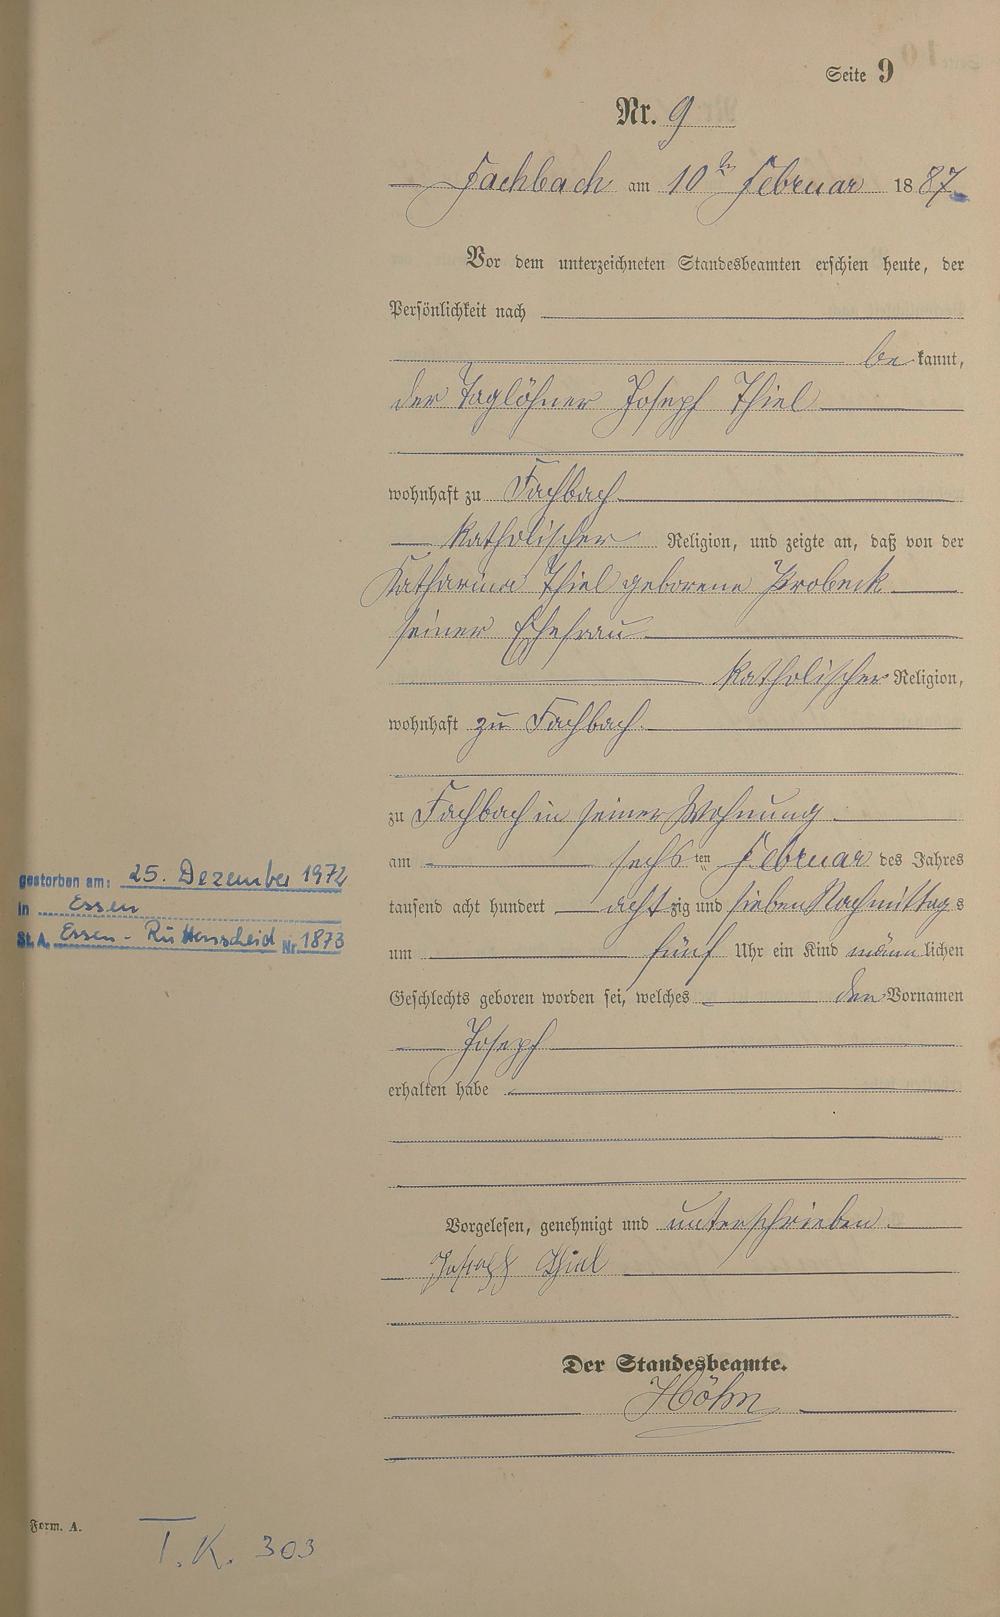 Seite 9
Nr. 9
Fachbach am 10ten Februar 1887
Vor dem unterzeichneten Standesbeamten erschien heute, der
Persönlichkeit nach
be kannt,
der Taglöhner Joseph Thiel
wohnhaft zu Fachbach
katholischer Religion, und zeigte an, daß von der
Katharina Thiel geborene Probeck
seiner Ehefrau
katholischer Religion,
wohnhaft zu Fachbach
zu Fachbach in seiner Wohnung
am sechsten Februar des Jahres
tausend acht hundert achtzig und sieben Nachmittags
um fünf Uhr ein Kind männlichen
Geschlechts geboren worden sei, welches den Vornamen
Joseph
erhalten habe
Vorgelesen, genehmigt und unterschrieben
Joseph Thiel
Der Standesbeamte.
Höhn
gestorben am: 25. Dezember 1972
in Essen
St.A. Essen-Rüttenscheid Nr. 1873
Form. A.
T.K. 303